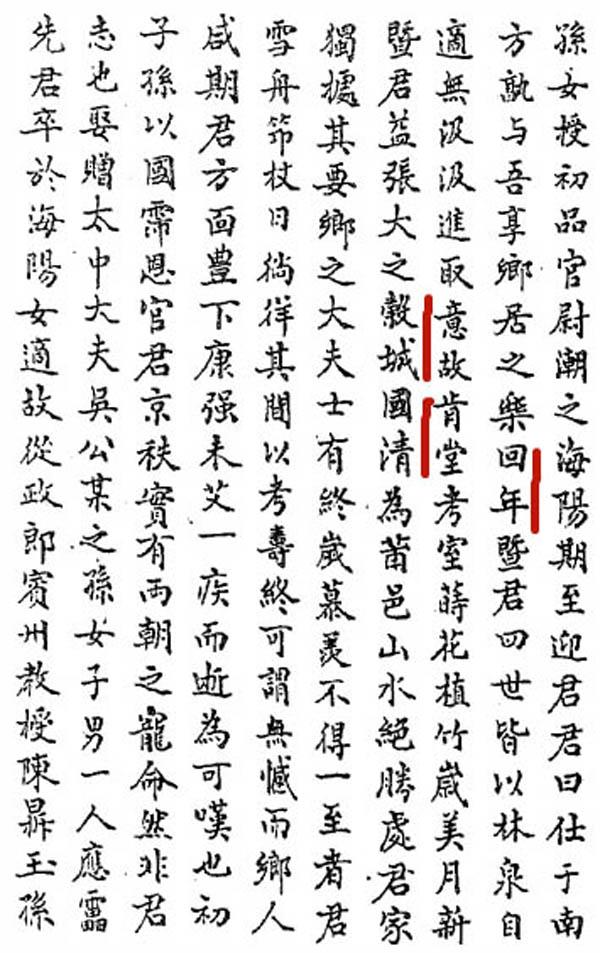 孫女授初品官尉潮之海陽期至迎君君曰仕于南
方孰与吾享鄉居之樂回年暨君四世皆以林泉自
適無汲汲進取意故肯堂考室蒔花植竹歲美月新
暨君益張大之穀城國清為莆邑山水絕勝處君家
獨據其要鄉之大夫士有終歲慕羨不得一至者君
雪舟笻杖日徜徉其間以考壽終可謂無憾而鄉人
咸期君方面豊下康强未艾一疾而逝為可嘆也初
子孫以國霈恩官君京秩實有两朝之寵命然非君
志也娶贈太中大夫吳公某之孫女子男一人應靁
先君卒於海陽女適故從政郎賓州教授陳昪玉孫